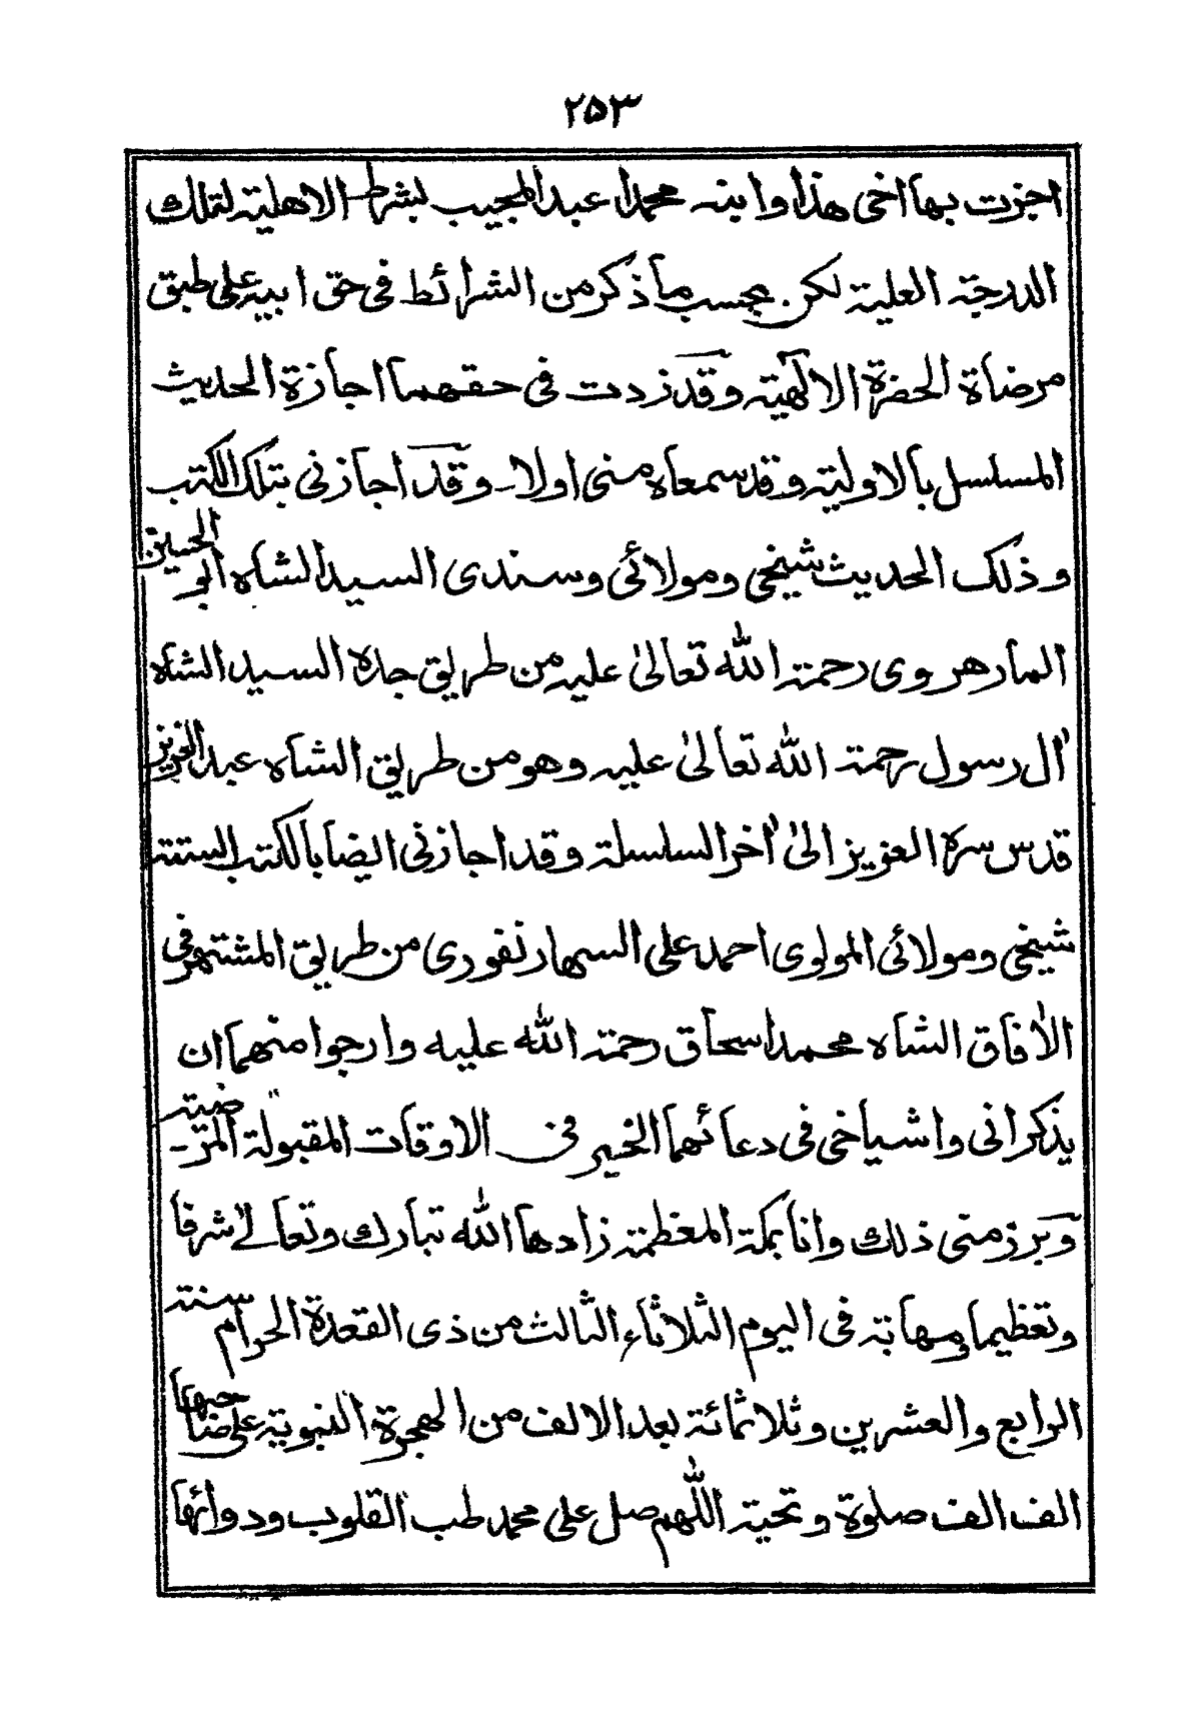 ۲۵۳
اجزت بها اخی هذا وابنه محمدا عبدالمجیب بشرط الاهلیة لتلك
الدرجة العلیة لکن بحسب ما ذکر من الشرائط فی حق ابیه علی طبق
مرضاة الحضرة الالٰهیة وقد زدت فی حقهما اجازة الحدیث
المسلسل بالاولیة وقد سمعاه منی اولا۔ وقد اجازنی بتلك الکتب
وذلك الحدیث شیخی ومولائی وسندی السید الشاه ابو الحسین
المارهروی رحمة الله تعالیٰ علیه من طریق جده السید الشاه
اٰل رسول رحمة الله تعالیٰ علیه وهو من طریق الشاه عبدالعزیز
قدس سره العزیز الیٰ اٰخر السلسلة وقد اجازنی ایضا بالکتب الستة
شیخی ومولائی المولوی احمد علی السهارنفوری من طریق المشتهر فی
الاٰفاق الشاه محمد اسحاق رحمة الله علیه وارجوا منهما ان
یذکرانی واشیاخی فی دعائهما الخیر فی الاوقات المقبولة المرضیة۔
وبرز منی ذلك وانا بمکة المعظمة زادها الله تبارك وتعالےٰ شرفا
وتعظیما ومهابة فی الیوم الثلاثاء الثالث من ذی القعدة الحرام سنة
الرابع والعشرین وثلاثمائة بعد الالف من الهجرة النبویة علی صاحبها
الف الف صلوة وتحیة اللّٰهم صل علی محمد طب القلوب ودوائها